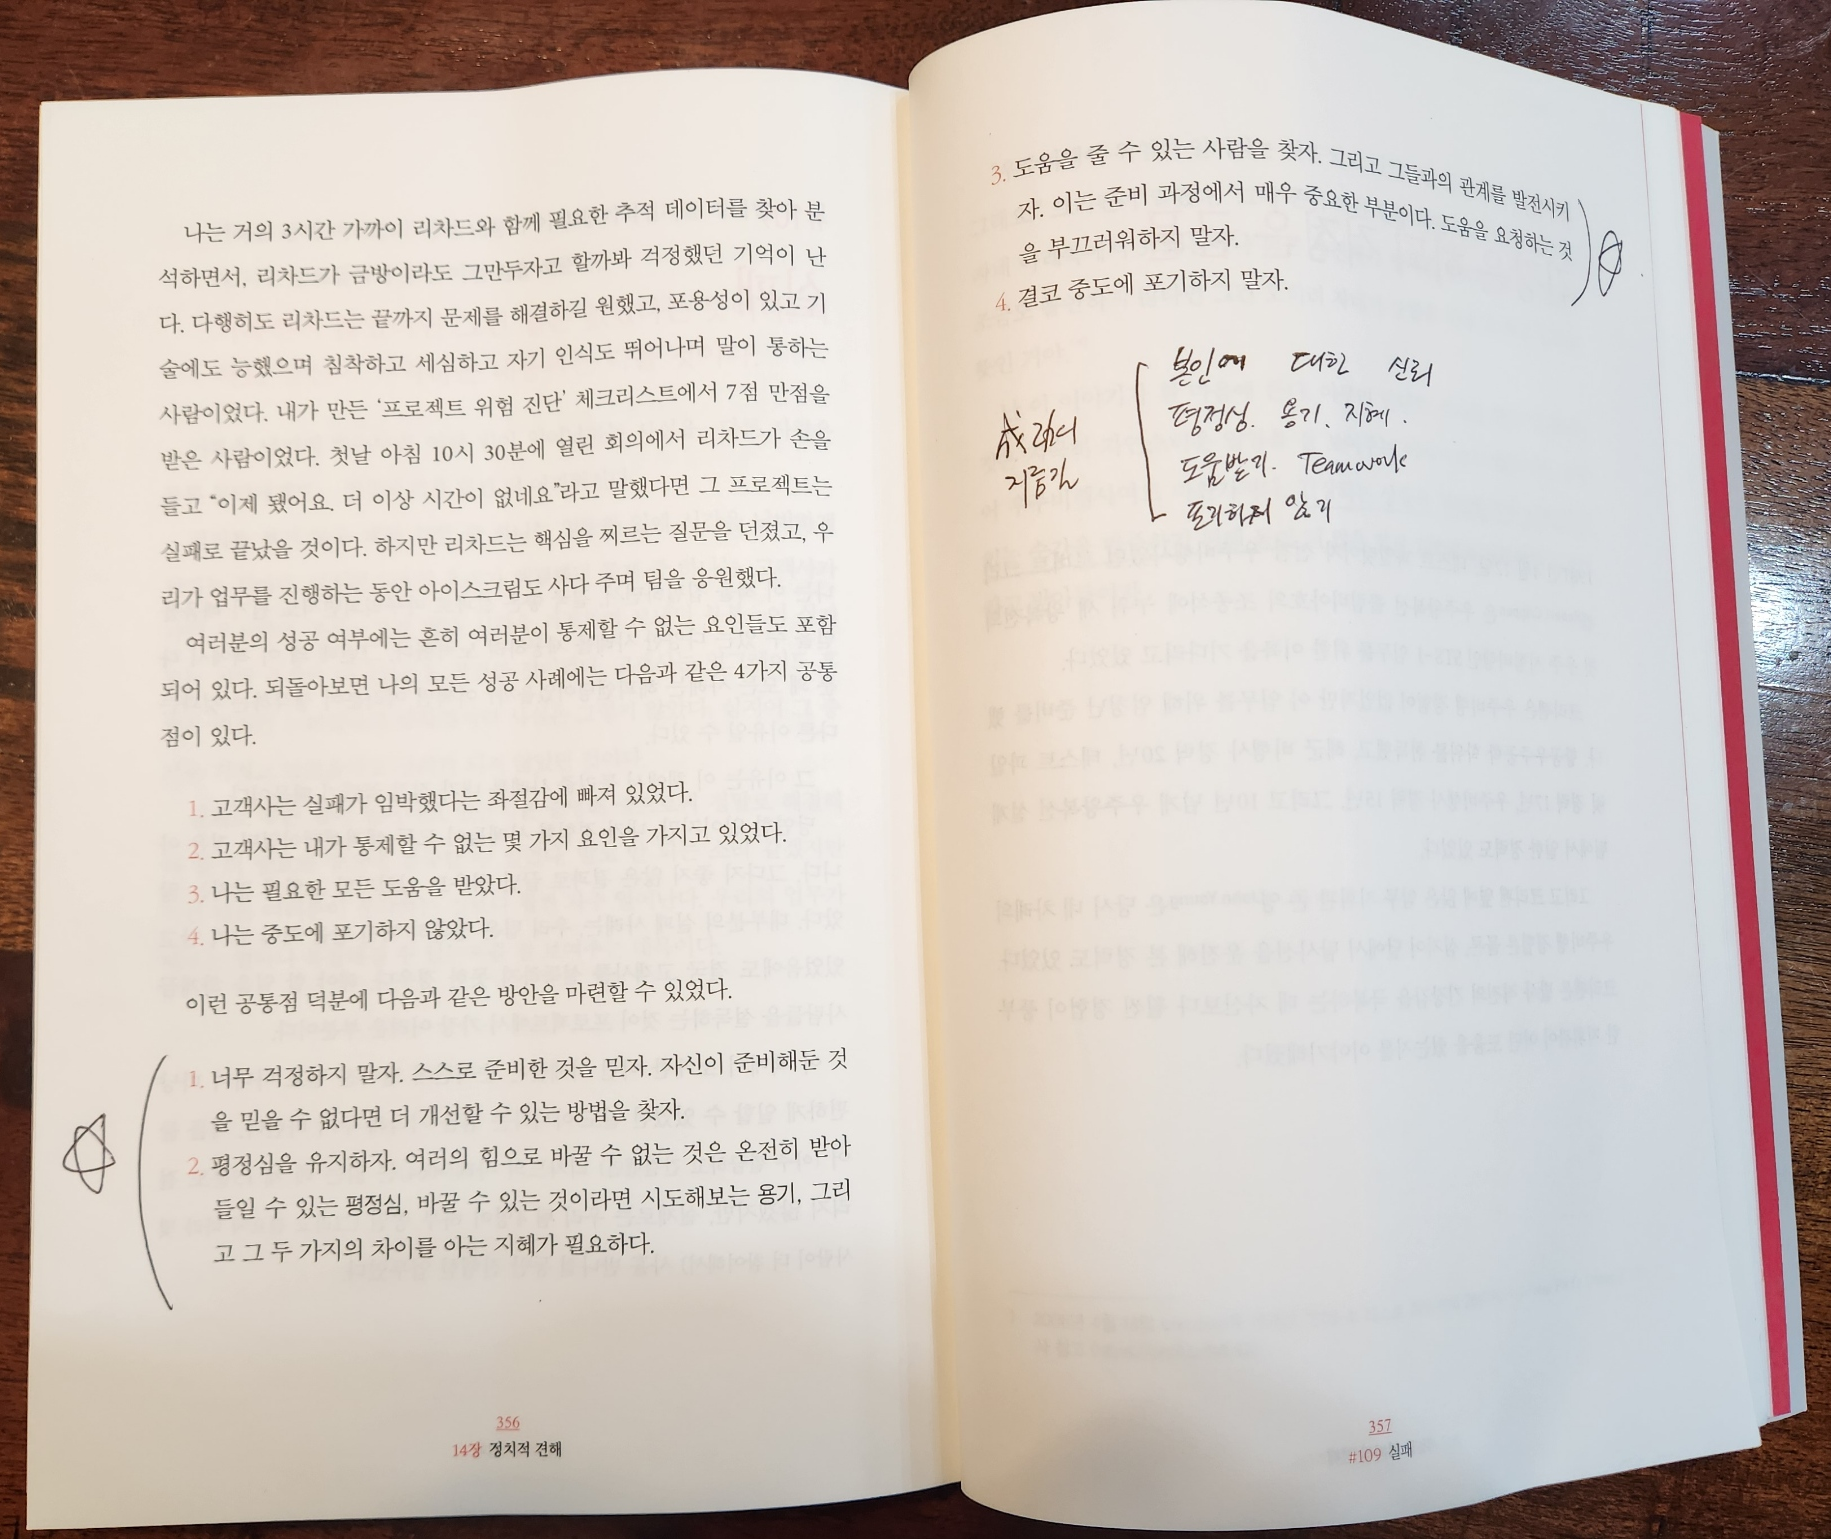 나는 거의 3시간 가까이 리차드와 함께 필요한 추적 데이터를 찾아 분
석하면서, 리차드가 금방이라도 그만두자고 할까봐 걱정했던 기억이 난
다. 다행히도 리차드는 끝까지 문제를 해결하길 원했고, 포용성이 있고 기
술에도 능했으며 침착하고 세심하고 자기 인식도 뛰어나며 말이 통하는
사람이었다. 내가 만든 ‘프로젝트 위험 진단’ 체크리스트에서 7점 만점을
받은 사람이었다. 첫날 아침 10시 30분에 열린 회의에서 리차드가 손을
들고 “이제 됐어요. 더 이상 시간이 없네요”라고 말했다면 그 프로젝트는
실패로 끝났을 것이다. 하지만 리차드는 핵심을 찌르는 질문을 던졌고, 우
리가 업무를 진행하는 동안 아이스크림도 사다 주며 팀을 응원했다.
여러분의 성공 여부에는 흔히 여러분이 통제할 수 없는 요인들도 포함
되어 있다. 되돌아보면 나의 모든 성공 사례에는 다음과 같은 4가지 공통
점이 있다.
1. 고객사는 실패가 임박했다는 좌절감에 빠져 있었다.
2. 고객사는 내가 통제할 수 없는 몇 가지 요인을 가지고 있었다.
3. 나는 필요한 모든 도움을 받았다.
4. 나는 중도에 포기하지 않았다.
이런 공통점 덕분에 다음과 같은 방안을 마련할 수 있었다.
1. 너무 걱정하지 말자. 스스로 준비한 것을 믿자. 자신이 준비해둔 것
을 믿을 수 없다면 더 개선할 수 있는 방법을 찾자.
2. 평정심을 유지하자. 여러의 힘으로 바꿀 수 없는 것은 온전히 받아
들일 수 있는 평정심, 바꿀 수 있는 것이라면 시도해보는 용기, 그리
고 그 두 가지의 차이를 아는 지혜가 필요하다.
356
14장 정치적 견해
3. 도움을 줄 수 있는 사람을 찾자. 그리고 그들과의 관계를 발전시키
자. 이는 준비 과정에서 매우 중요한 부분이다. 도움을 요청하는 것
을 부끄러워하지 말자.
4. 결코 중도에 포기하지 말자.
지름길
본인에 대한 신뢰
평정심. 용기. 지혜.
도움받기. Teamwork
포기하지 않기
357
#109 실패